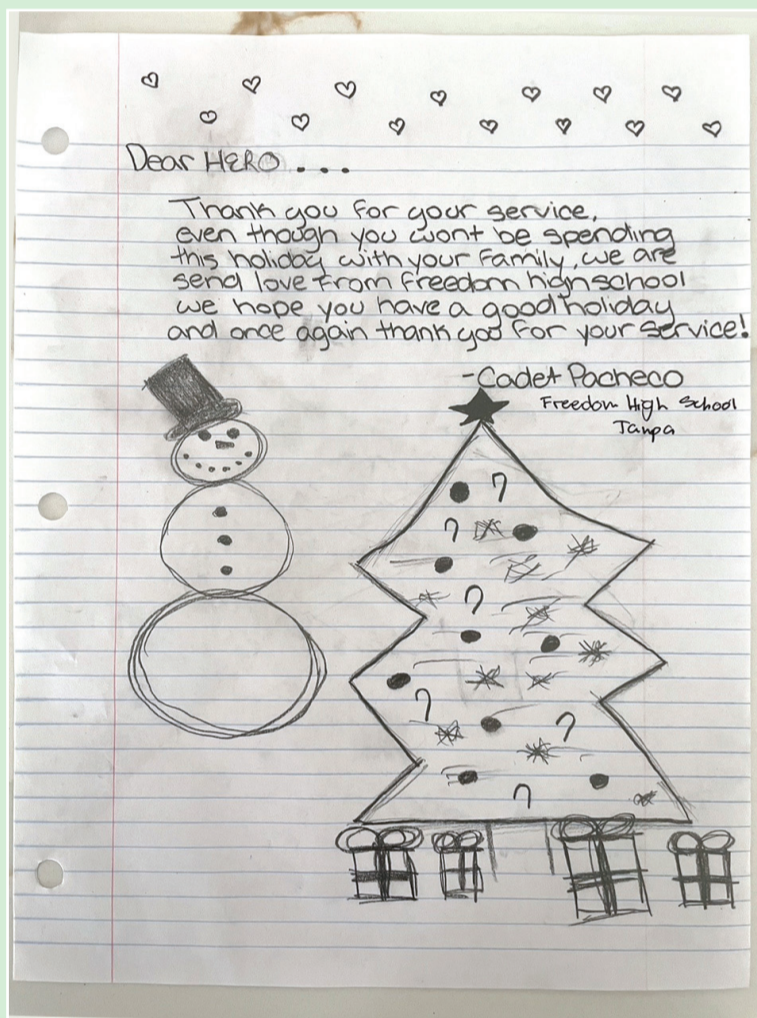 Dear HERO...
Thank you for your service,
even though you wont be spending
this holiday with your family, we are
send love from freedom high school
we hope you have a good holiday
and once again thank you for your service!
-Cadet Pacheco
Freedom High School
Tampa